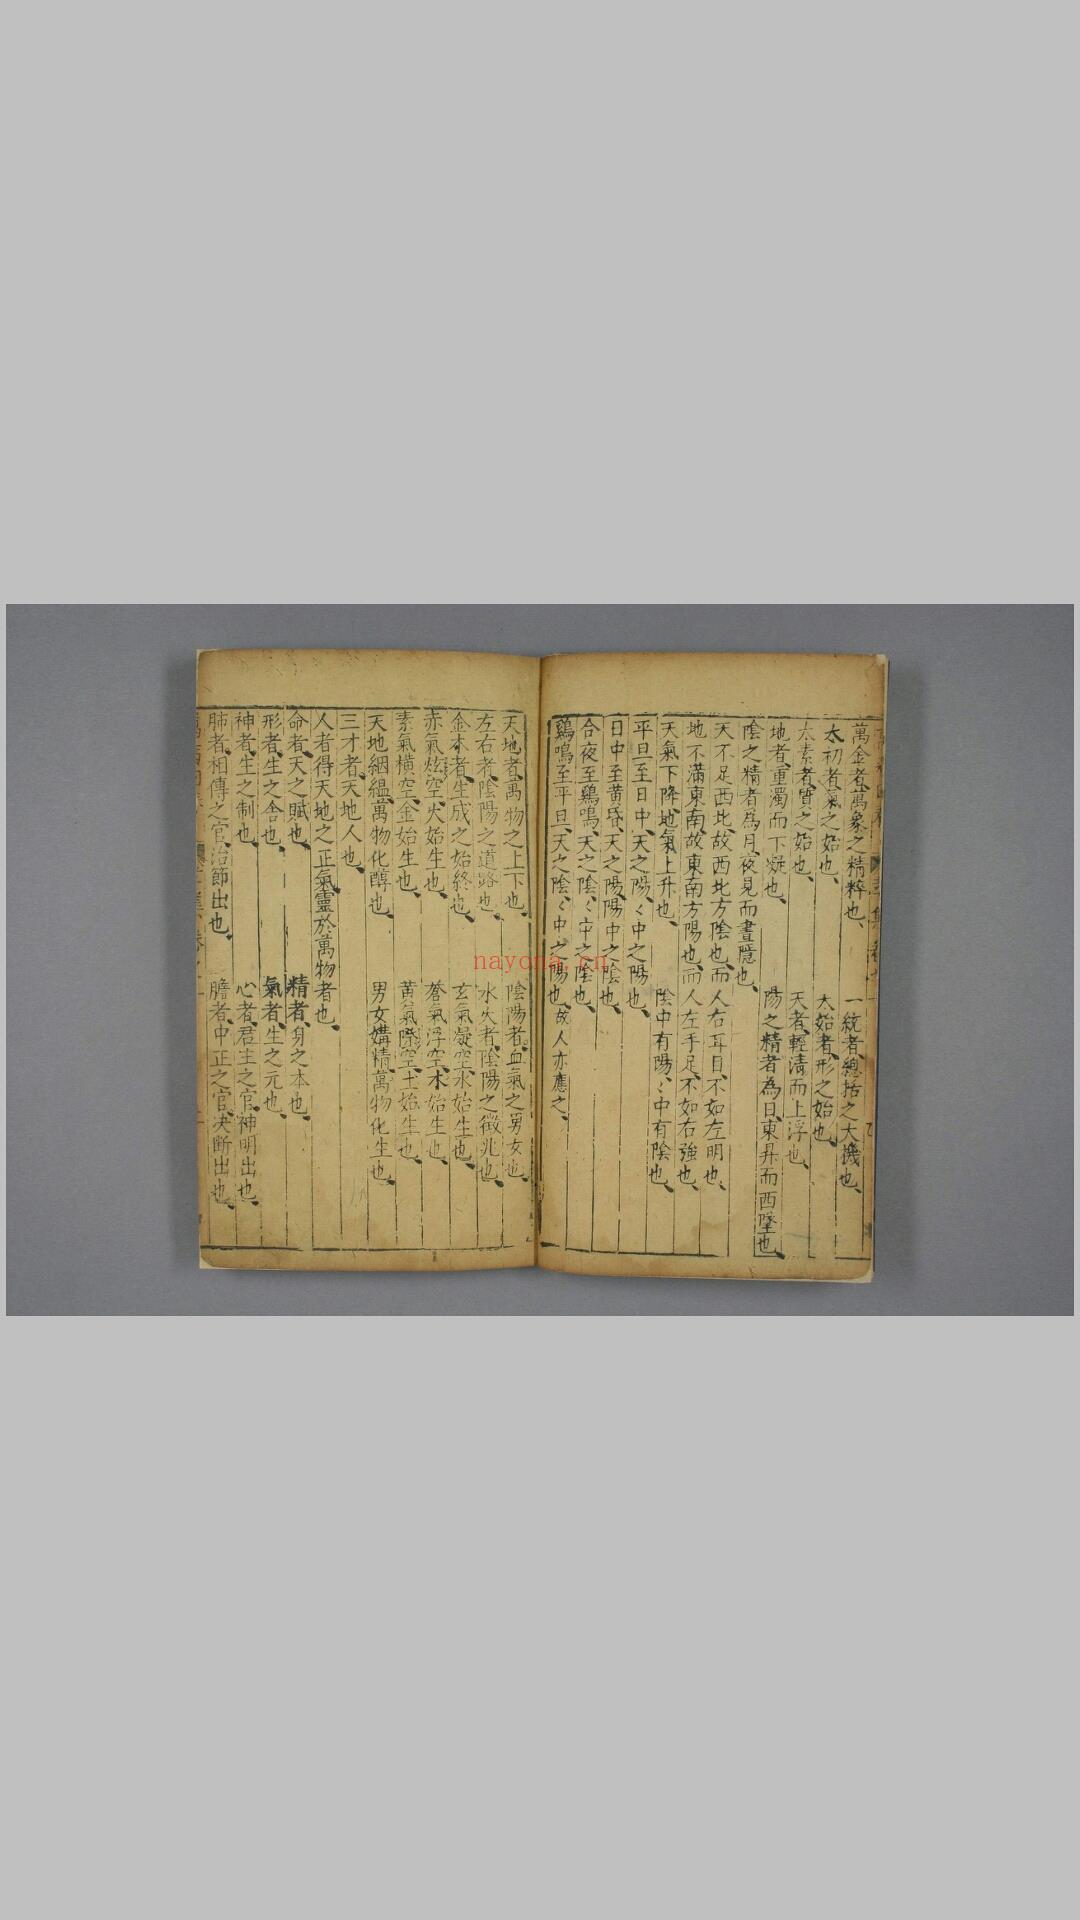 萬金者、萬象之精粹也、
一統者、總括之大機也、
太初者、氣之始也、
太始者、形之始也、
太素者、質之始也、
天者、輕清而上浮也、
地者、重濁而下凝也、
陽之精者為日、東昇而西墜也、
陰之精者為月、夜見而晝隱也、
天不足西北、故西北方陰也、而人右耳目、不如左明也、
地不滿東南、故東南方陽也、而人左手足、不如右強也、
天氣下降、地氣上升也、
陰中有陽、〻中有陰也、
平旦至日中、天之陽、〻中之陽也、
日中至黄昏、天之陽、陽中之陰也、
合夜至鷄鳴、天之陰、〻中之陰也、
鷄鳴至平旦、天之陰、〻中之陽也、故人亦應之、
天地者、萬物之上下也、
陰陽者、血氣之男女也、
左右者、陰陽之道路也、
水火者、陰陽之徵兆也、
金木者、生成之始終也、
玄氣凝空、水始生也、
赤氣炫空、火始生也、
蒼氣浮空、木始生也、
素氣橫空、金始生也、
黄氣際空、土始生也、
天地絪緼、萬物化醇也、
男女媾精、萬物化生也、
三才者、天地人也、
人者、得天地之正氣、靈於萬物者也、
命者、天之賦也、
精者、身之本也、
形者、生之舍也、
氣者、生之元也、
神者、生之制也、
心者、君主之官、神明出也、
肺者、相傳之官、治節出也、
膽者、中正之官、決断出也、
nayona.cn